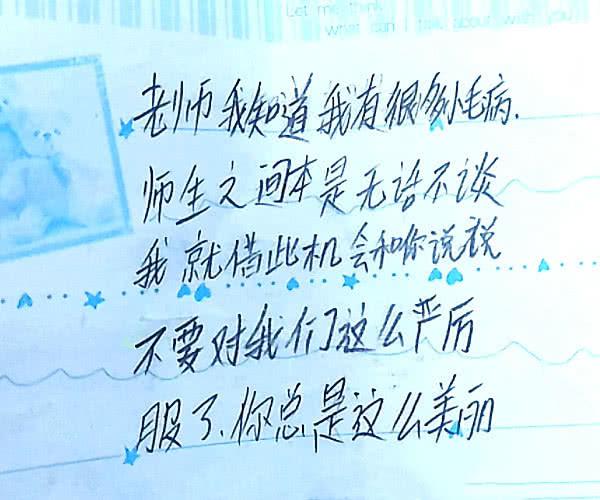 Let me think
what can I talk about with you
老师我知道我有很多小毛病.
师生之间本是无话不谈
我就借此机会和你说说
不要对我们这么严厉
服了.你总是这么美丽